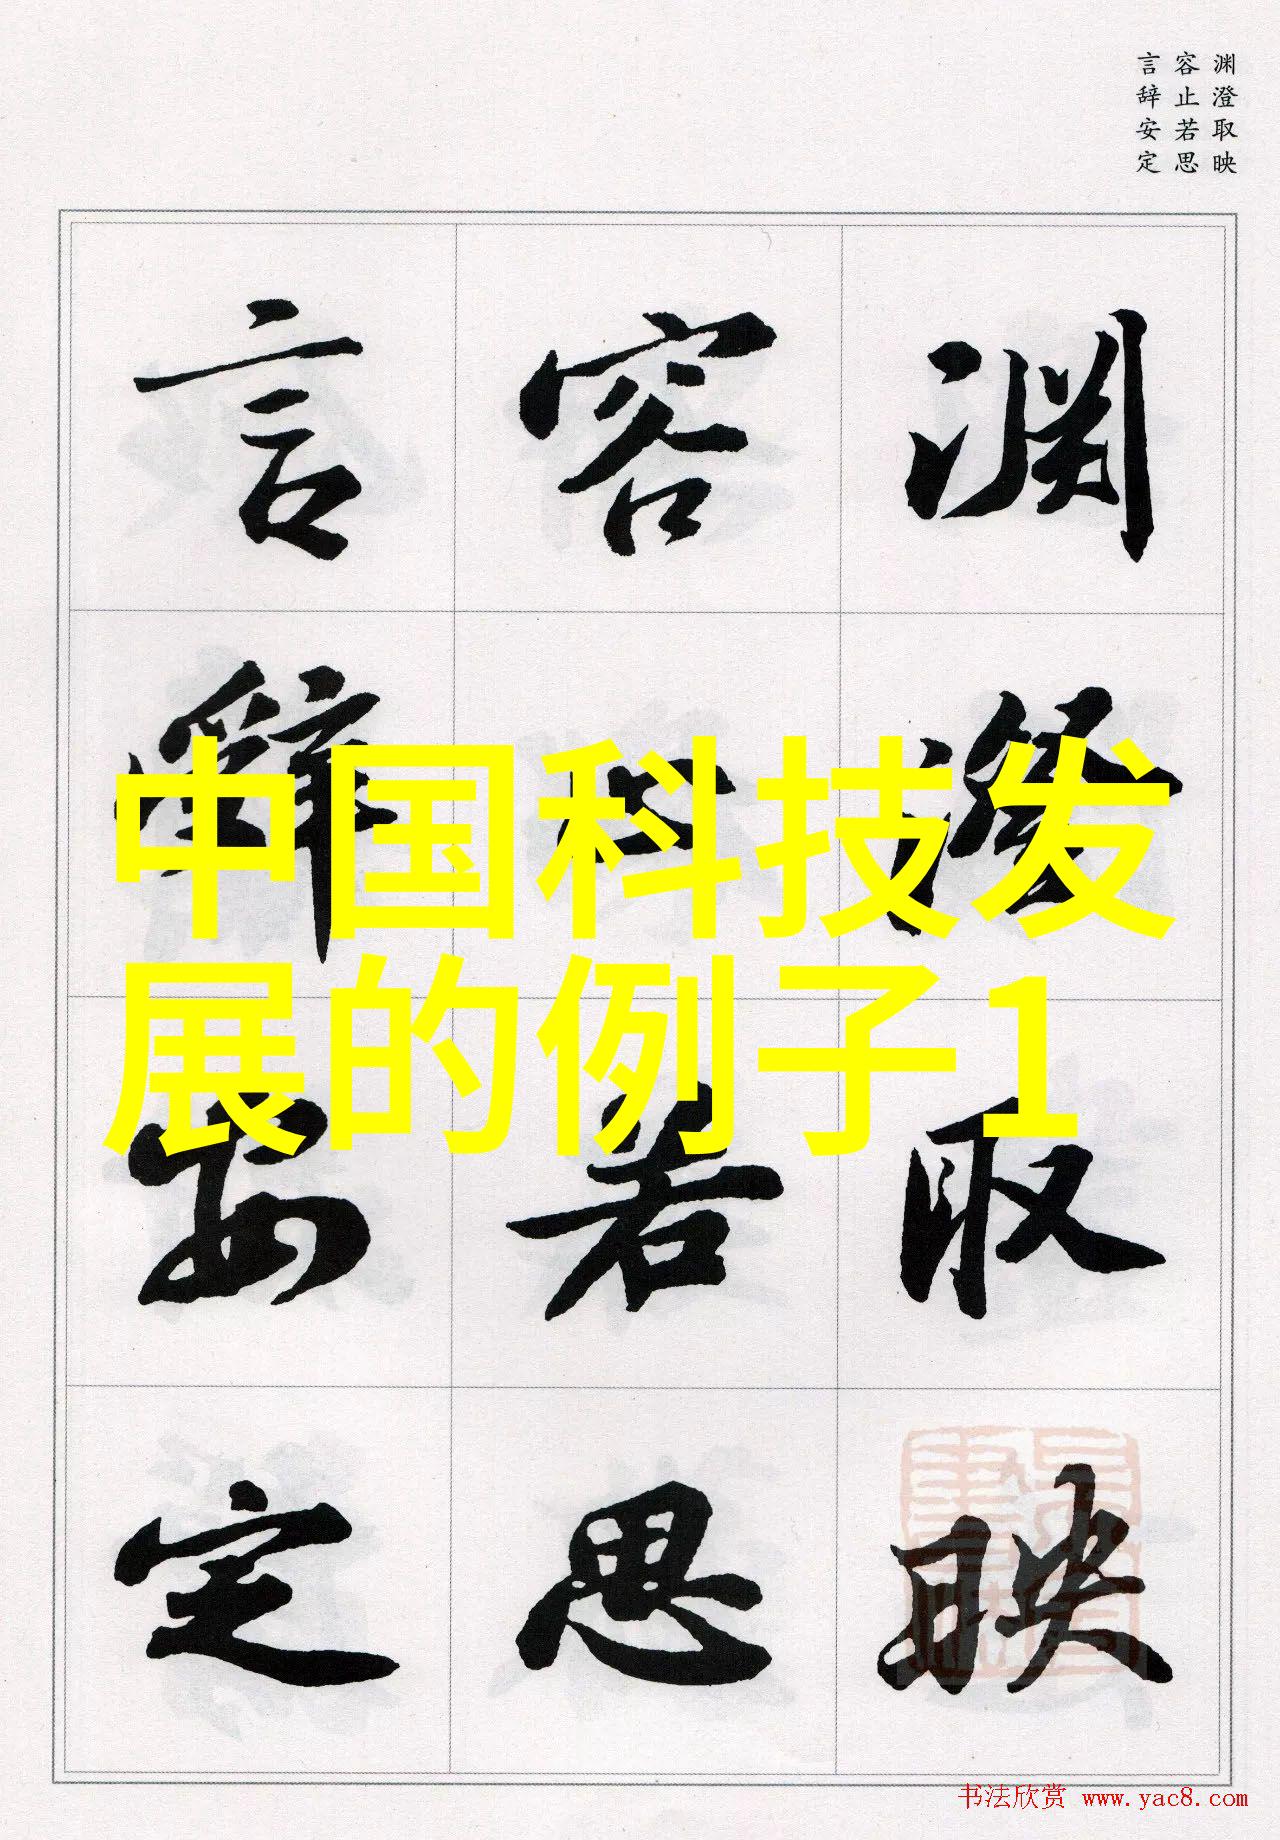 渊澄取映
容止若思
言辞安定
渊澄取映
容止若思
言辞安定
中国科技发
展的例子1
书法欣赏 www.yac8.com